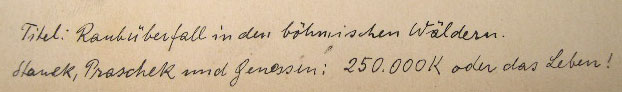 Titel: Raubüberfall in den böhmischen Wäldern.
Stanek, Praschek und Genossin: 250.000K oder das Leben!